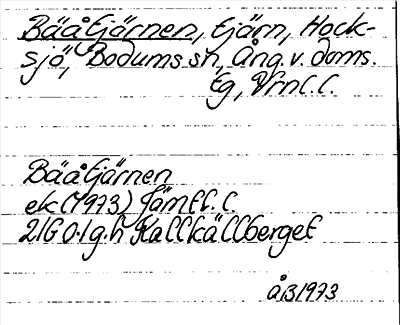 Bäåtjärnen, tjärn, Hock-
sjö, Bodums sn, Ång. v. doms.
tg, Vrnl. l.
Bäåtjärnen
ek (1973) Jämtl. l.
21G 0-1 g.h Kallkällberget
ÅB 1973